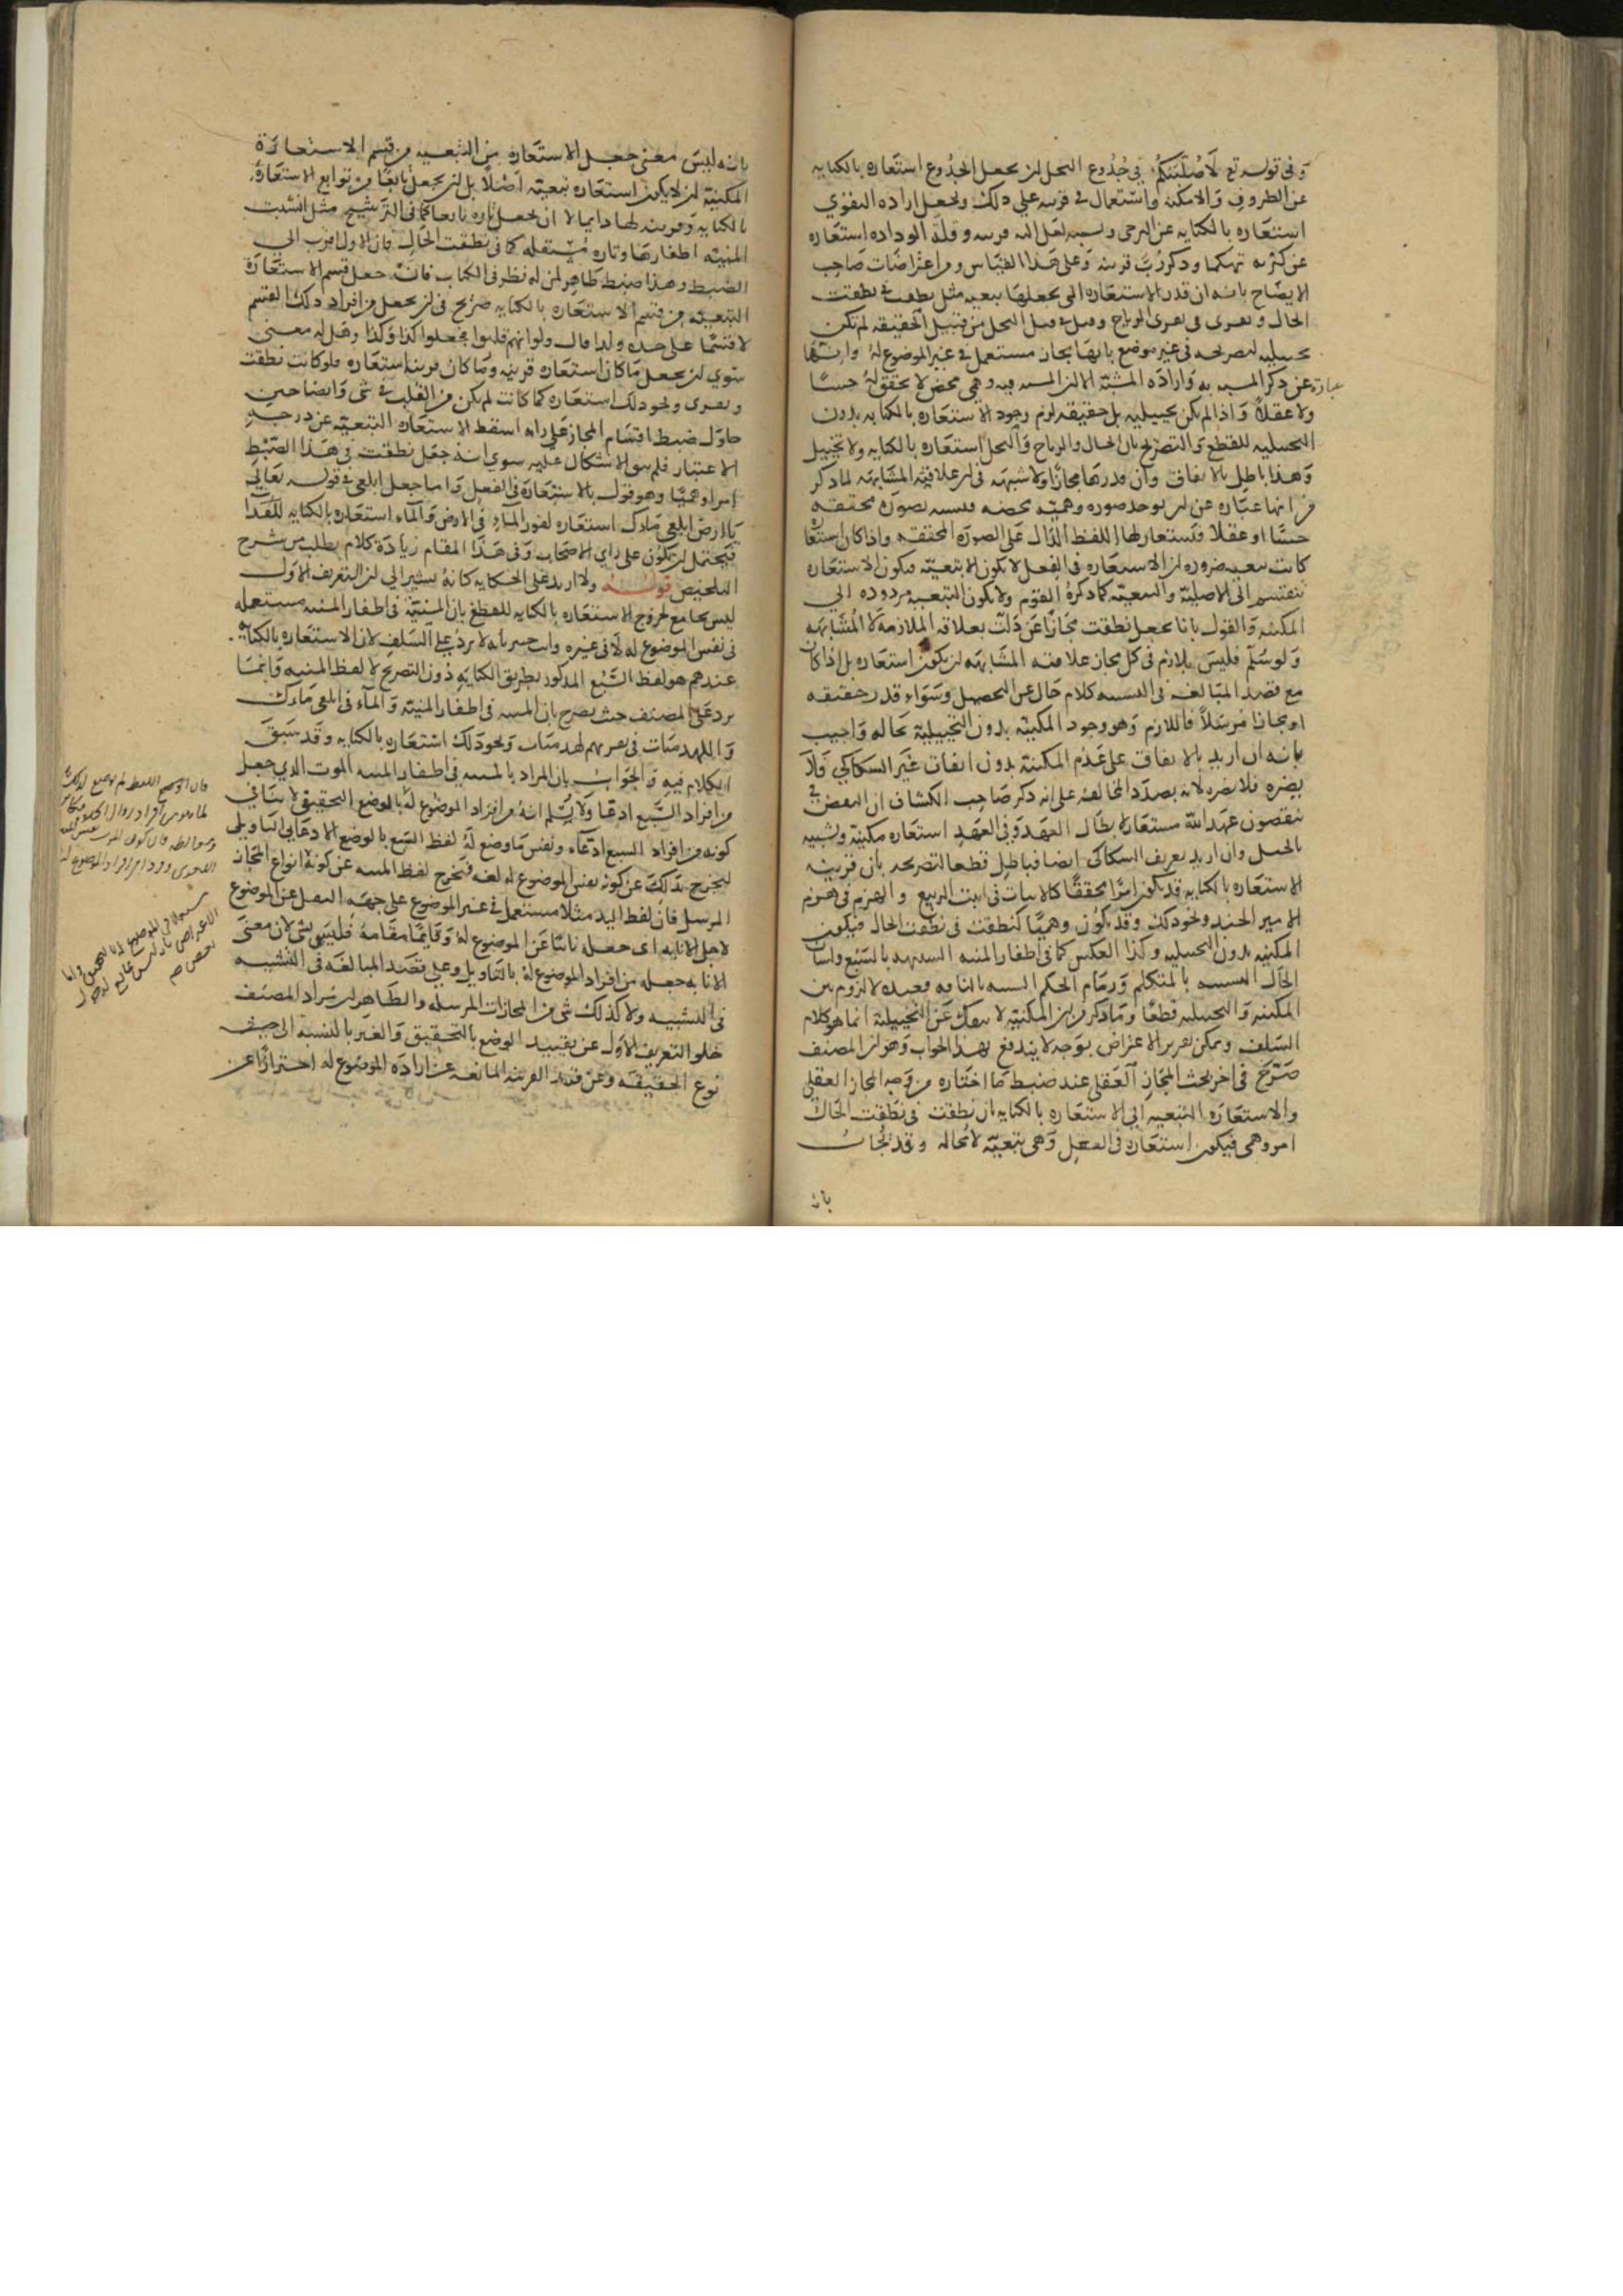 وفي قوله تع لأصلبنكم في جذوع النخل لن يجعل الجذوع استعاره بالكنايه
عن الظروف والامكنه واستعمال في قرينه على ذلك ويجعل اراده التقوي
استعاره بالكنايه عن الترجي ونسبه لعل اليه قرينه وقلة الوداده استعاره
عن كثرته تهكما وذكر رب قرينه وعلى هذا القياس ومن اعتراضات صاحب
الايضاح بانه ان قدر الاستعاره التي يجعلها تبعيه مثل نطقت في نطقت
الحال من قبيل الحقيقه لم تكن
تخييليه لتصريحه في غير موضع بانها مجاز مستعمل في غير الموضوع له وانها
عباره عن ذكر المشبه به واراده المشبه الا لن المشبه فيه وهمي محض لا تحقق له حسا
ولا عقلا واذا لم يكن تخييليه بل حقيقه لزم وجود الاستعاره بالكنايه بدون
التخييليه للقطع والتصريح بان الحال والرياح والنخل استعاره بالكنايه ولا تخييل
وهذا باطل بالاتفاق وان قدرها مجازا ولا شبهه في لن علاقته المشابهه لما ذكر
من انها عباره عن لن يوجد صوره وهميه محضه فتشبه بصوره محققه
حسا او عقلا فتستعار لها اللفظ الدال على الصوره المحققه واذا كان استعاره
كانت تبعيه ضروره لن الاستعاره في الفعل لا يكون الا تبعيه فيكون الاستعاره
تنقسم الى الاصليه والتبعيه كما ذكره القوم ولا يكون التبعيه مردوده الى
المكنيه والقول بانا نجعل نطقت مجازا عن دلت بعلاقه الملازمه لا المشابهه
ولو سلم فليس بلازم في كل مجاز علاقته المشابهه لن يكون استعاره بل اذا كان
مع قصد المبالغه في التشبيه كلام خال عن التحصيل وسواء قدر حقيقه
او مجازا مرسلا فاللازم وهو وجود المكنيه بدون التخييليه بحاله واجيب
بانه ان اريد بالاتفاق على عدم المكنيه بدون اتفاق غير السكاكي فلا
يضره فلا يضره لانه بصدد المخالفه على انه ذكر صاحب الكشاف ان النقض في
ينقضون عهد الله مستعار لابطال العهد وفي العهد استعاره مكنيه وتشبيه
بالحبل وان اريد تعريف السكاكي ايضا فباطل قطعا لتصريحه بان قرينه
الاستعاره بالكنايه قد يكون امرا محققا كالانبات في انبت الربيع والهزم في هزم
الامير الجند ونحو ذلك وقد يكون وهميا كنطقت في نطقت الحال فيكون
المكنيه بدون التخييليه وكذا العكس كما في اظفار المنيه الشبيهه بالسبع ولسان
الحال الشبيه بالمتكلم وزمام الحكم الشبيه بالناقه فعنده لا لزوم بين
المكنيه والتخييليه قطعا وما ذكر من لن المكنيه لا ينفك عن التخييليه انما هو كلام
السلف ويمكن تقرير الاعتراض بوجه لا يندفع بهذا الجواب وهو لن المصنف
صرح في اخر بحث المجاز العقلي عند ضبط ما اختاره من وجه المجاز العقلي
والاستعاره التبعيه الى الاستعاره بالكنايه ان نطقت في نطقت الحال
امر وهمي فيكون استعاره في الفعل وهي تبعيه لا محاله وقد يجاب
بانه
بانه ليس معنى جعل الاستعاره من التبعيه من قسم الاستعارة
المكنيه لن لا يكون استعاره تبعيه اصلا بل لن يجعل تابعا من توابع الاستعارة
بالكنايه وقرينه لها دايما لا ان يجعل تاره تابعا كما في الترشيح مثل انشبت
المنيه اظفارها وتاره مستقله كما في نطقت الحال فان الاول اقرب الى
الضبط وهذا ضبط ظاهر لمن له نظر في الكتاب فانه جعل قسم الاستعارة
التبعيه من قسم الاستعاره بالكنايه صريح في لن يجعل من افراد ذلك القسم
لا قسما على حده ولذا قال ولو انهم قلبوا فجعلوا كذا وكذا وهل له معنى
سوي لن يجعل ما كان استعاره قرينه وما كان قرينه استعاره فلو كانت نطقت
ونحو ذلك استعاره كما كانت لم يكن من القلب في شي وايضا حين
حاول ضبط اقسام المجاز على رايه اسقط الاستعاره التبعيه عن درجه
الاعتبار فلم يبق الاشكال عليه سوي انه جعل نطقت في هذا الضبط
امرا وهميا وهو قول بالاستعارة في الفعل واما جعل ابلعي في قوله تعالى
يا ارض ابلعي ماءك استعاره لغور الماء في الارض والماء استعاره بالكنايه للغذا
فيحتمل لن يكون على راي الاصحاب وفي هذا المقام زيادة كلام يطلب من شرح
التلخيص قوله ولا اريد على الحكايه كانه يشير الى لن التعريف الاول
ليس بجامع لخروج الاستعاره بالكنايه للقطع بان المنيه في اظفار المنيه مستعمله
في نفس الموضوع له لا في غيره وانت خبير بانه لا يرد على السلف لان الاستعاره بالكنايه
عندهم هو لفظ السبع المذكور بطريق الكنايه دون التصريح لا لفظ المنيه وانما
يرد على المصنف حيث يصرح بان المشبه في اظفار المنيه والماء في ابلعي ماءك
واللهذميات في نقريهم لهذميات ونحو ذلك استعاره بالكنايه وقد سبق
الكلام فيه والجواب بان المراد بالمنيه في اظفار المنيه الموت الذي جعل
من افراد السبع ادعا ولا نسلم انه من افراد الموضوع له بالوضع التحقيقي لا ينافي
كونه من افراد السبع ادعاء ونفس ما وضع له لفظ السبع بالوضع الادعائي التاويلي
ليخرج بذلك عن كونه نفس الموضوع له لغه فيخرج لفظ المنيه عن كونه انواع المجاز
المرسل فان لفظ اليد مثلا مستعمل في غير الموضوع على جهه النقل عن الموضوع
لاجل الانابه اي جعله نائبا عن الموضوع له وقايما مقامه فليس بشي لان معنى
الانابه جعله من افراد الموضوع له بالتاويل وعلى قصد المبالغه في التشبيه
في التشبيه ولا كذلك شي من المجازات المرسله والظاهر لن مراد المصنف
خلو التعريف الاول عن تقييد الوضع بالتحقيق والغير بالنسبه الى حيث
نوع الحقيقه وعن قيد القرينه المانعه عن ارادة الموضوع له احترازا عن